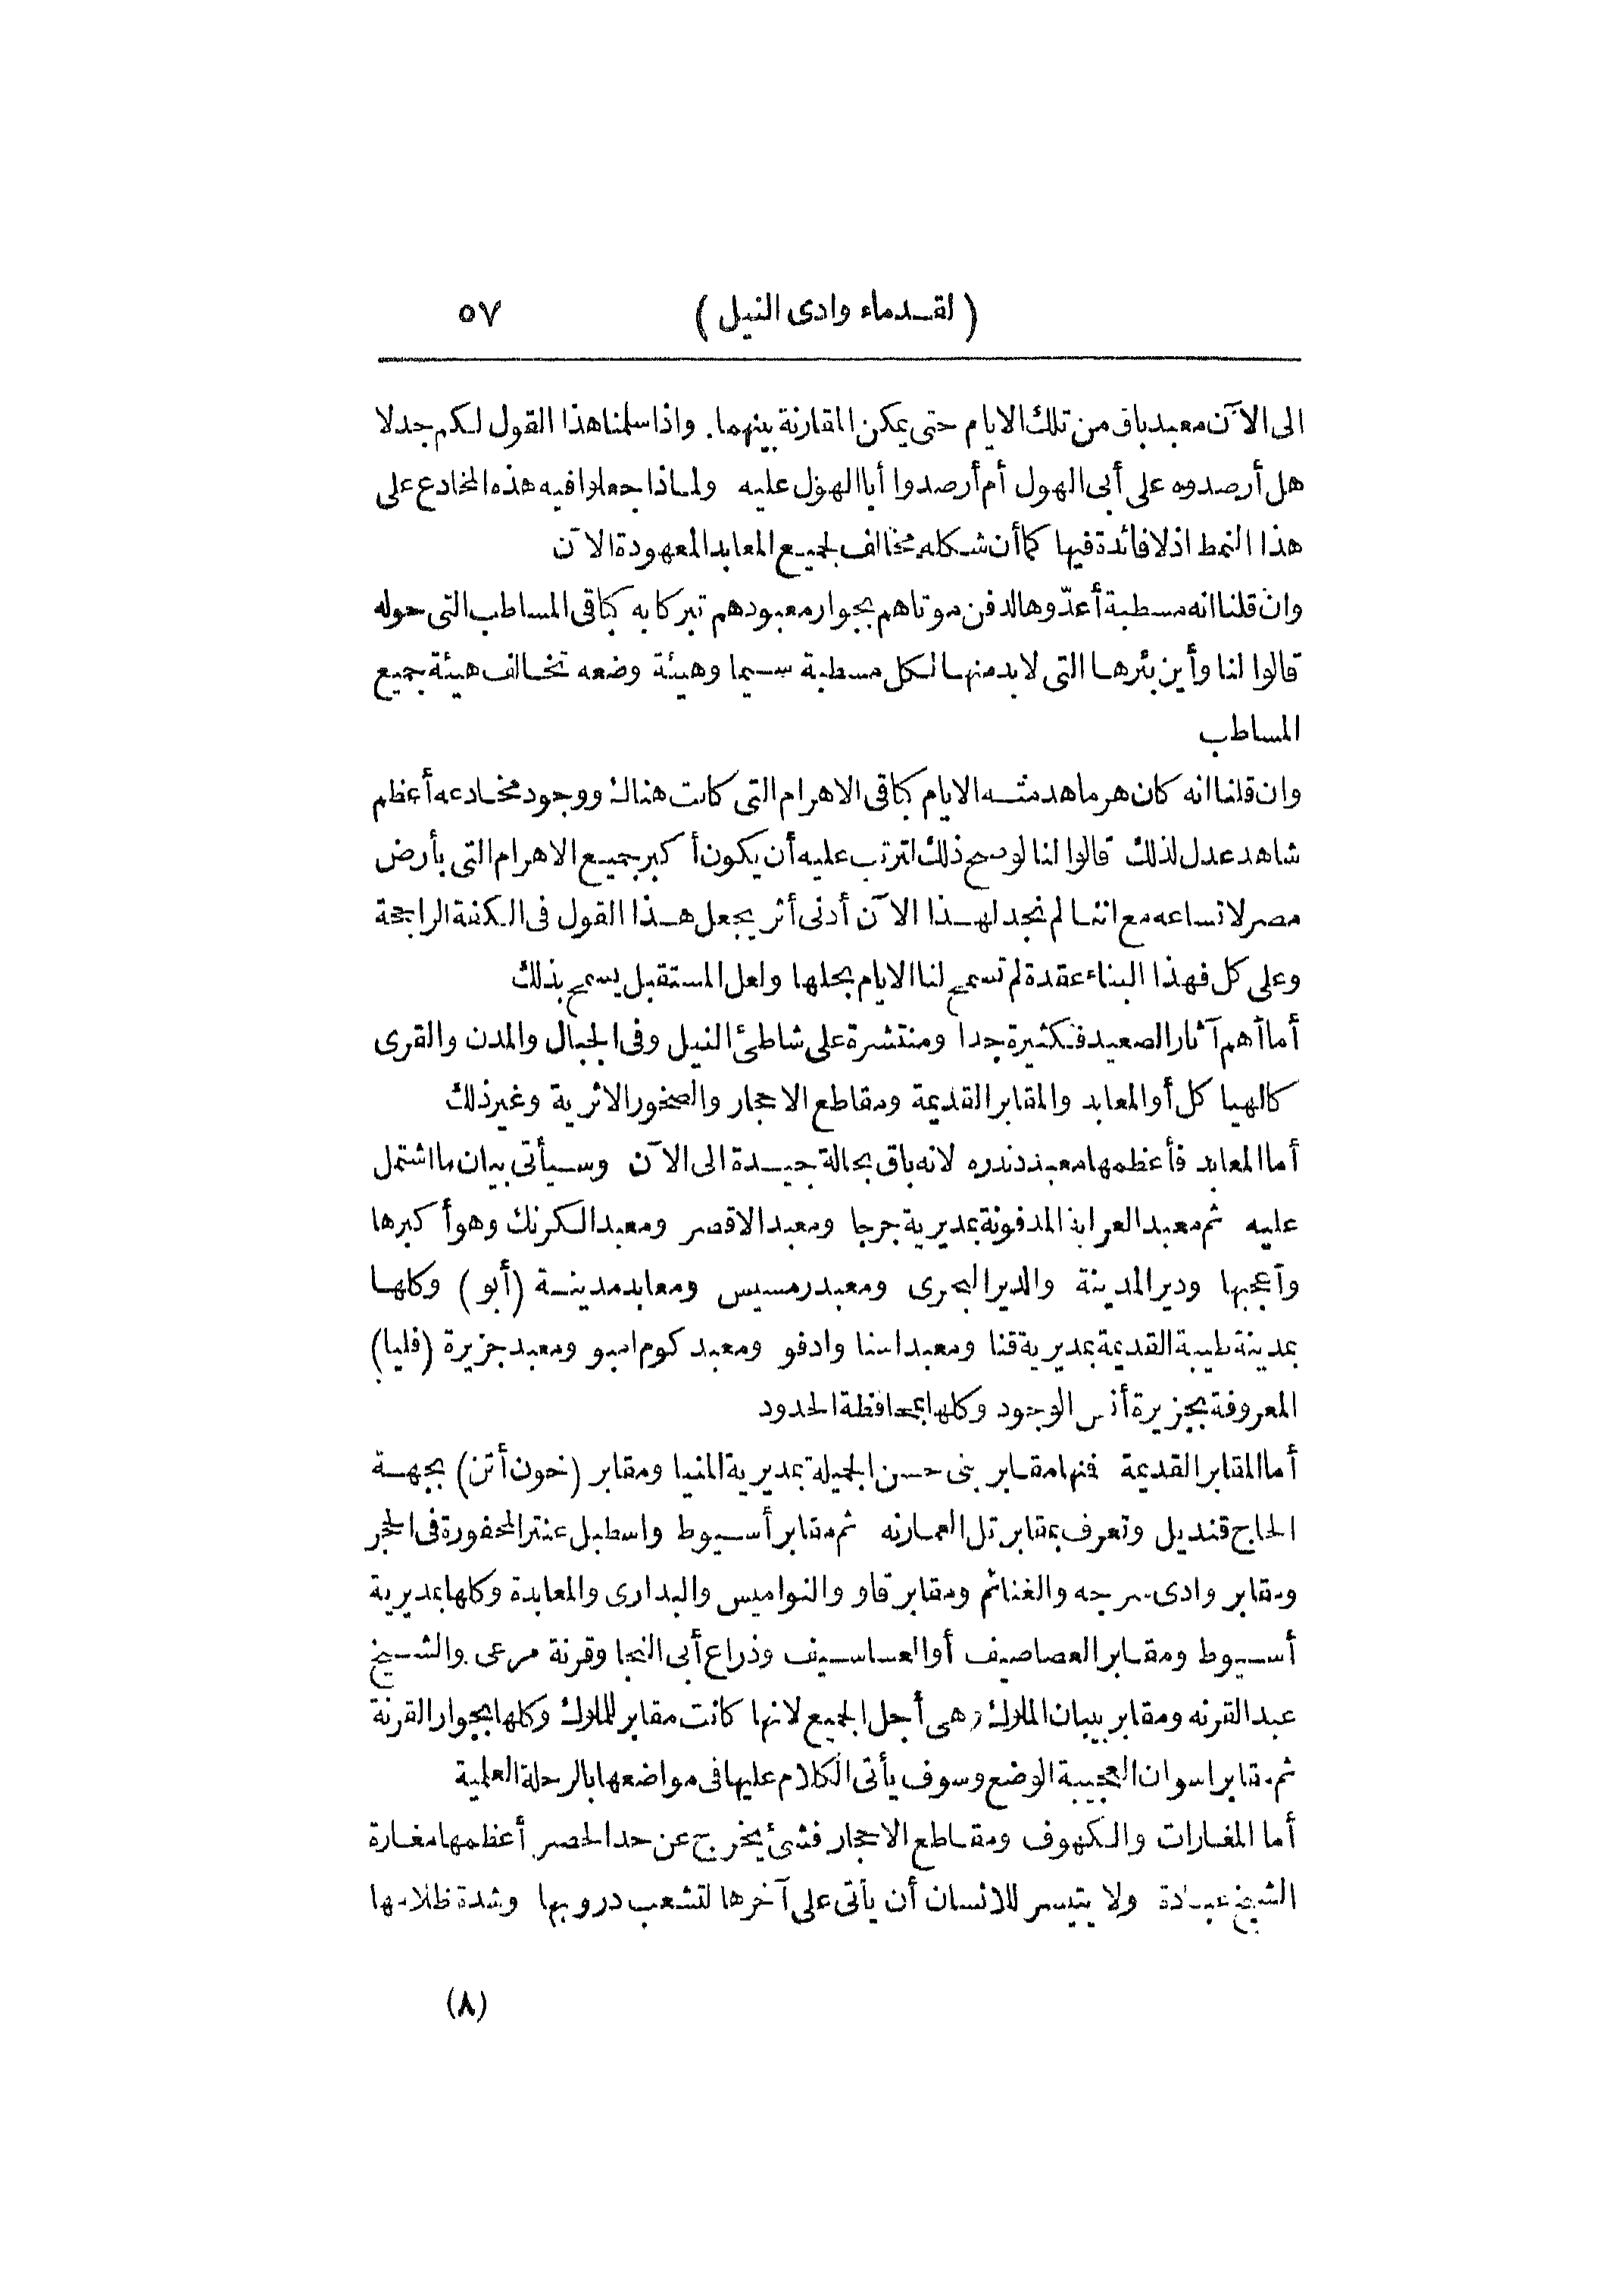 (لقدماء وادى النيل) ٥٧
الى الآن معبد باق من تلك الايام حتى يمكن المقارنة بينهما. واذا سلمنا هذا القول لكم جدلا
هل أرصدوه على أبى الهول أم أرصدوا أبا الهول عليه ولماذا جعلوا فيه هذه المخادع على
هذا النمط اذ لا فائدة فيها كما أن شكله مخالف لجميع المعابد المعهودة الآن
وان قلنا انه مسطبة أعدّوها لدفن موتاهم بجوار معبودهم تبركا به كباقى المساطب التى حوله
قالوا لنا وأين بئرها التى لابد منها لكل مسطبة سيما وهيئة وضعه تخالف هيئة جميع
المساطب
وان قلنا انه كان هرما هدمته الايام كباقى الاهرام التى كانت هناك ووجود مخادعه أعظم
شاهد عدل لذلك قالوا لنا لو صح ذلك لترتب عليه أن يكون أكبر جميع الاهرام التى بأرض
مصر لاتساعه مع اننا لم نجد لهذا الآن أدنى أثر يجعل هذا القول فى الكفة الراجحة
وعلى كل فهذا البناء عقدة لم تسمح لنا الايام بحلها ولعل المستقبل يسمح بذلك
أما أهم آثار الصعيد فكثيرة جدا ومنتشرة على شاطئ النيل وفى الجبال والمدن والقرى
كالهياكل أو المعابد والمقابر القديمة ومقاطع الاحجار والصخور الاثرية وغير ذلك
أما المعابد فأعظمها معبد دندره لانه باق بحالة جيدة الى الآن وسيأتى بيان ما اشتمل
عليه ثم معبد العرابة المدفونة بمديرية جرجا ومعبد الاقصر ومعبد الكرنك وهو أكبرها
وأعجبها ودير المدينة والدير البحرى ومعبد رمسيس ومعابد مدينة (أبو) وكلها
بمدينة طيبة القديمة بمديرية قنا ومعبد اسنا وادفو ومعبد كوم امبو ومعبد جزيرة (فليا)
المعروفة بجزيرة أنس الوجود وكلها بمحافظة الحدود
أما المقابر القديمة فنها مقابر بنى حسن الجميلة بمديرية المنيا ومقابر (خون أتن) بجهة
الحاج قنديل وتعرف بمقابر تل العمارنه ثم مقابر أسيوط واسطبل عنتر المحفورة فى الحجر
ومقابر وادى سرجه والغنائم ومقابر قاو والنواميس والبدارى والمعابدة وكلها بمديرية
أسيوط ومقابر العصاصيف أو العساسيف وذراع أبى النجا وقرنة مرعى والشيخ
عبد القرنه ومقابر بيبان الملوك وهى أجل الجميع لانها كانت مقابر للملوك وكلها بجوار القرنة
ثم مقابر اسوان العجيبة الوضع وسوف يأتى الكلام عليها فى مواضعها بالرحلة العلمية
أما المغارات والكهوف ومقاطع الاحجار فشئ يخرج عن حد الحصر أعظمها مغارة
الشيخ عبادة ولا يتيسر للانسان أن يأتى على آخرها لتشعب دروبها وشدة ظلامها
(٨)